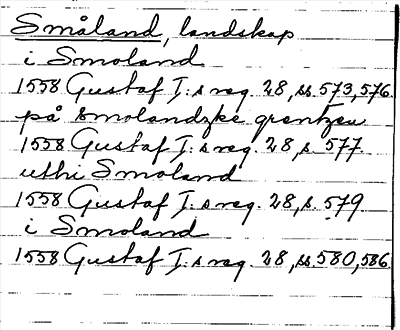 Småland, landskap
i Smoland
1558 Gustaf I:s reg. 28, ss. 573, 576.
på Smolandzke grentzen
1558 Gustaf I:s reg. 28, s. 577.
uthi Smoland
1558 Gustaf I:s reg. 28, s. 579
i Smoland
1558 Gustaf I:s reg. 28, ss. 580, 586.